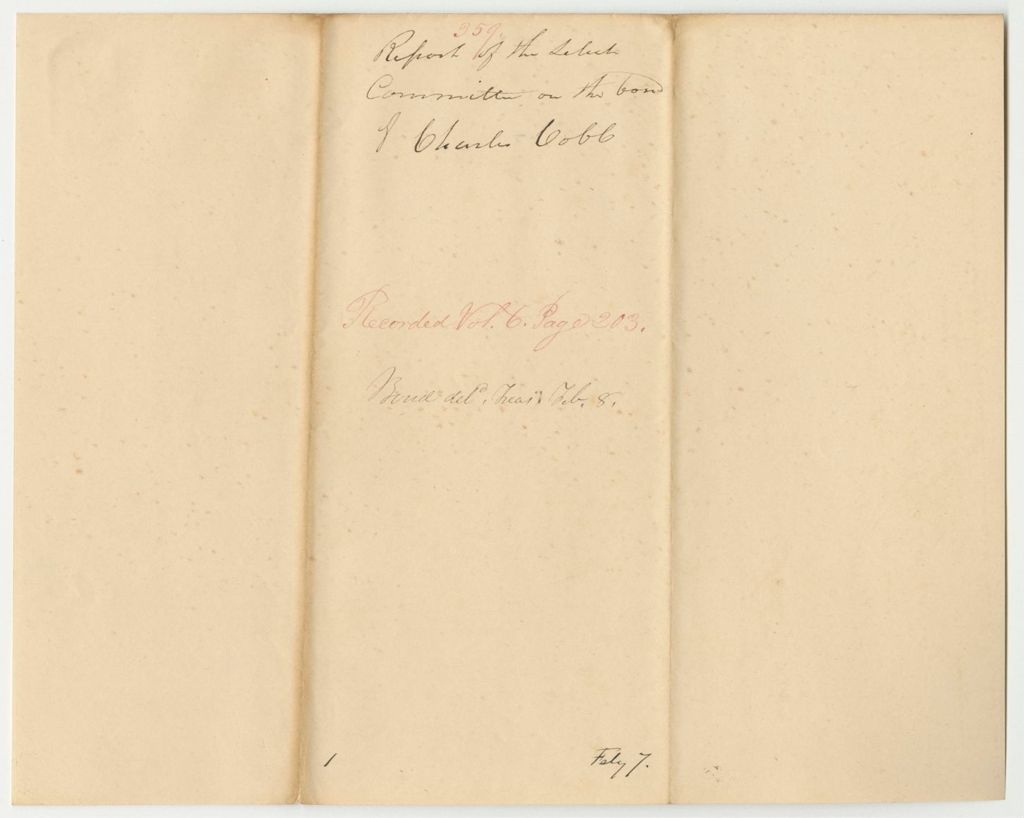 359.
Report of the Select
Committee on the bond
of Charles Cobb
Recorded Vol. 6. Page 203.
Bond deld. Treasr. Feb. 8.
1
Feby 7.